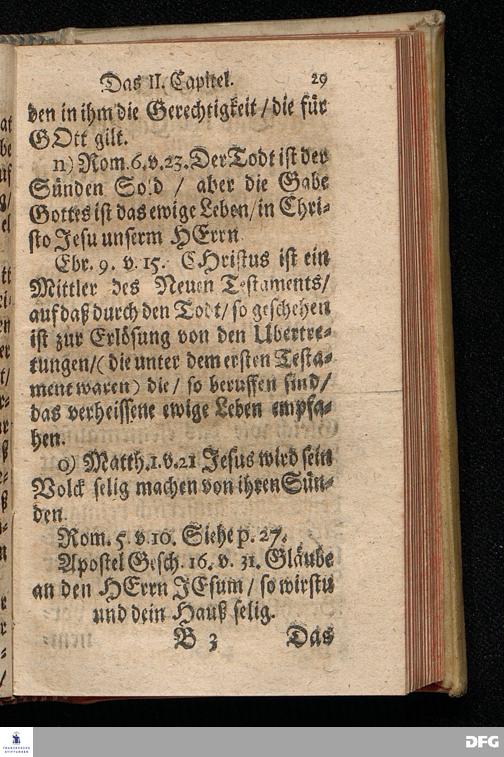 Das II. Capitel. 29
den in ihm die Gerechtigkeit / die für
GOtt gilt.
n) Rom. 6. v. 23. Der Todt ist der
Sünden Sold / aber die Gabe
Gottes ist das ewige Leben / in Chri-
sto Jesu unserm HErrn
Ebr. 9. v. 15. CHristus ist ein
Mittler des Neuen Testaments /
auf daß durch den Todt / so geschehen
ist zur Erlösung von den Ubertre-
tungen / (die unter dem ersten Testa-
ment waren) die / so beruffen sind /
das verheissene ewige Leben empfa-
hen.
o) Matth. 1. v. 21 Jesus wird sein
Volck selig machen von ihren Sün-
den
Rom. 5. v. 10. Siehe p. 27.
Apostel Gesch. 16. v. 31. Gläube
an den HErrn JEsum / so wirstu
und dein Hauß selig.
B 3 Das
FRANCKESCHE
STIFTUNGEN
DFG